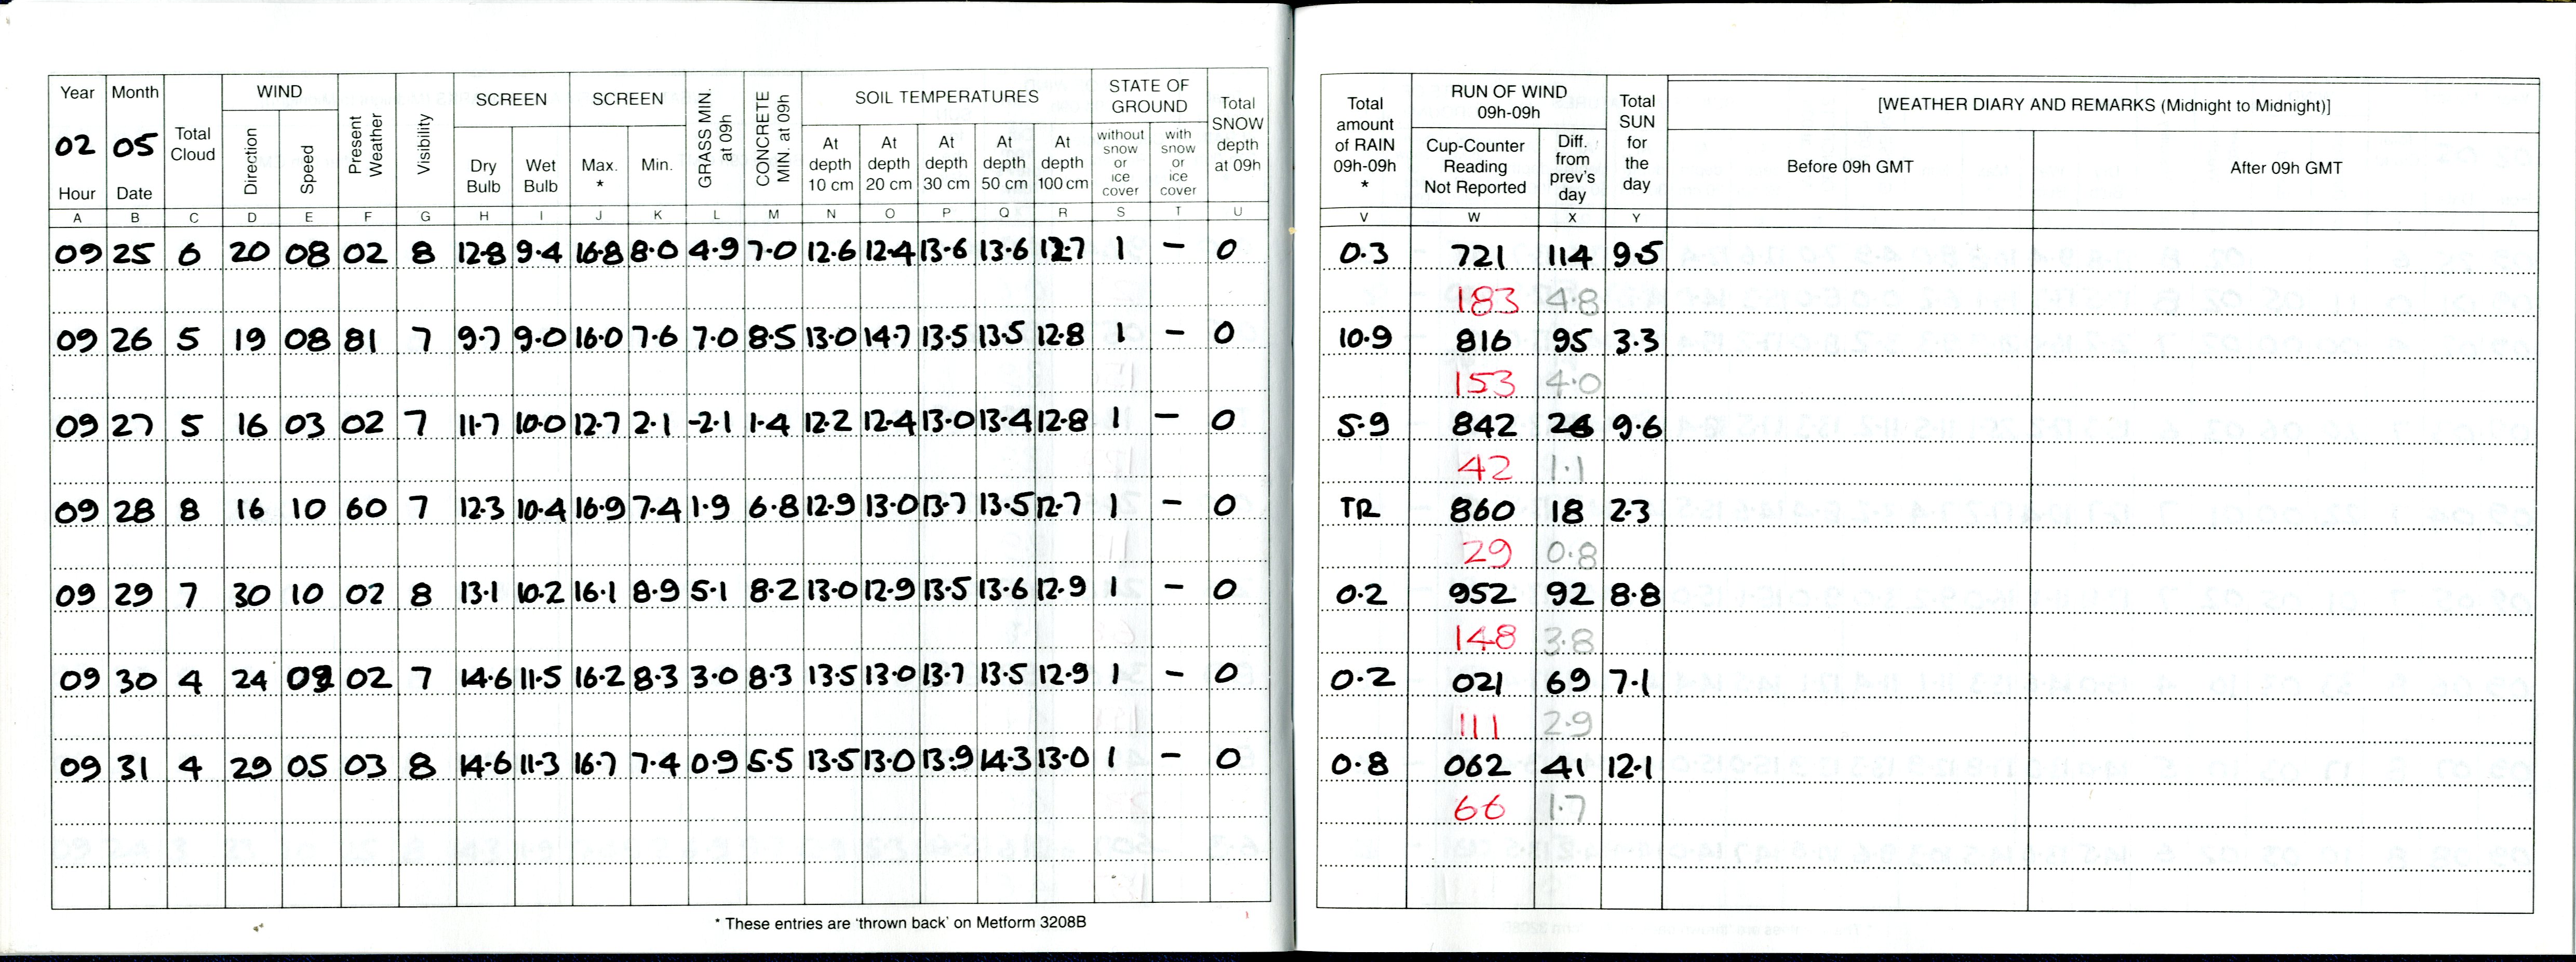 Year Month Total Cloud WIND Present Weather Visibility SCREEN SCREEN GRASS MIN. at 09h CONCRETE MIN. at 09h SOIL TEMPERATURES STATE OF GROUND Total SNOW depth at 09h
02 05 Direction Speed Dry Bulb Wet Bulb Max. * Min. At depth 10 cm At depth 20 cm At depth 30 cm At depth 50 cm At depth 100 cm without snow or ice cover with snow or ice cover
Hour Date
A B C D E F G H I J K L M N O P Q R S T U
09 25 6 20 08 02 8 12.8 9.4 16.8 8.0 4.9 7.0 12.6 12.4 13.6 13.6 12.7 1 – 0
09 26 5 19 08 81 7 9.7 9.0 16.0 7.6 7.0 8.5 13.0 14.7 13.5 13.5 12.8 1 – 0
09 27 5 16 03 02 7 11.7 10.0 12.7 2.1 -2.1 1.4 12.2 12.4 13.0 13.4 12.8 1 – 0
09 28 8 16 10 60 7 12.3 10.4 16.9 7.4 1.9 6.8 12.9 13.0 13.7 13.5 12.7 1 – 0
09 29 7 30 10 02 8 13.1 10.2 16.1 8.9 5.1 8.2 13.0 12.9 13.5 13.6 12.9 1 – 0
09 30 4 24 02 7 14.6 11.5 16.2 8.3 3.0 8.3 13.5 13.0 13.7 13.5 12.9 1 – 0
09 31 4 29 05 03 8 14.6 11.3 16.7 7.4 0.9 5.5 13.5 13.0 13.9 14.3 13.0 1 – 0
* These entries are 'thrown back' on Metform 3208B
Total amount of RAIN 09h-09h * RUN OF WIND 09h-09h Total SUN for the day [WEATHER DIARY AND REMARKS (Midnight to Midnight)]
Cup-Counter Reading Not Reported Diff. from prev's day Before 09h GMT After 09h GMT
V W X Y
0.3 721 114 9.5
183 4.8
10.9 816 95 3.3
153 4.0
5.9 842 26 9.6
42 1.1
TR 860 18 2.3
29 0.8
0.2 952 92 8.8
148 3.8
0.2 021 69 7.1
111 2.9
0.8 062 41 12.1
66 1.7